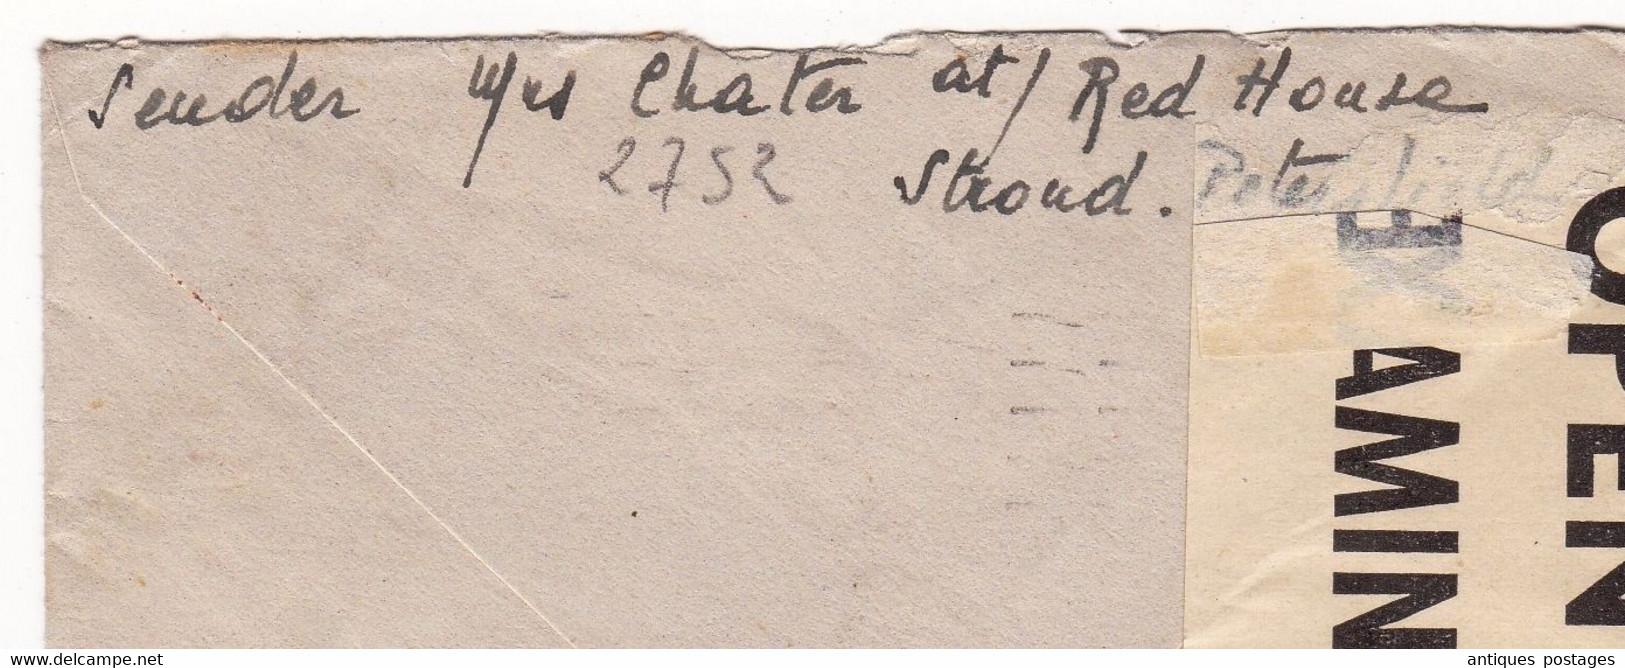 Sender Mrs Chater at/ Red House
2752 Stroud. Petersfield
OPEN
EXAMIN
www.delcampe.net
antiques postages